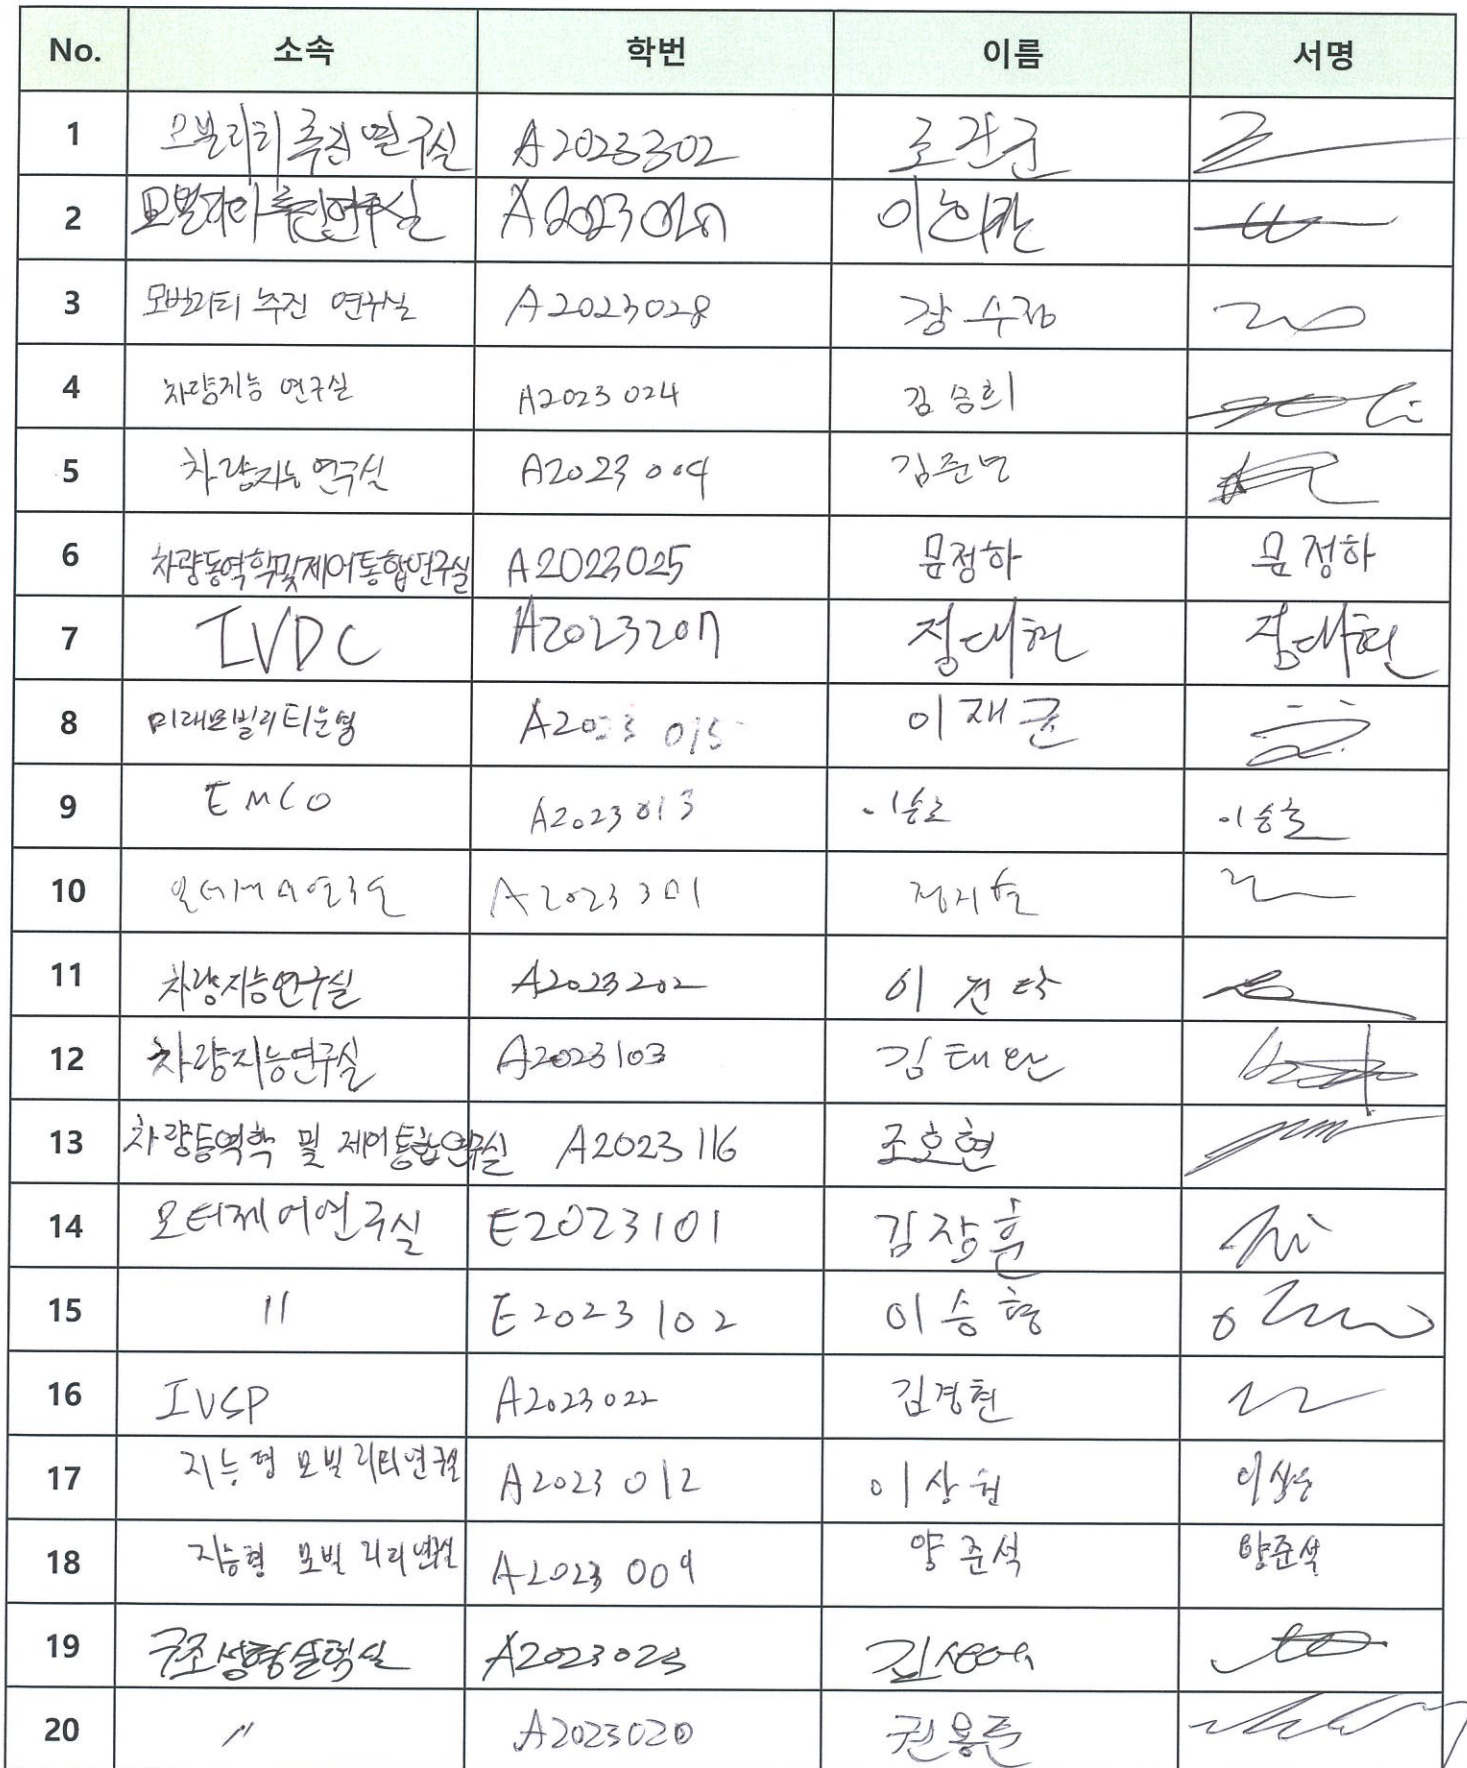 No. 소속 학번 이름 서명
1 모빌리티 추진 연구실 A2023302
2 모빌리티 추진연구실 A2023027
3 모빌리티 추진 연구실 A2023028 강수정
4 차량지능 연구실 A2023024 김승희
5 차량지능 연구실 A2023004
6 차량동역학및제어통합연구실 A2023025 문정하 문정하
7 IVDC A2023207 정대현 정대현
8 미래모빌리티운영 A2023015 이재균
9 EMCO A2023013
10 A2023301
11 차량지능연구실 A2023202
12 차량지능연구실 A2023103 김태완
13 차량동역학 및 제어통합연구실 A2023116 조호현
14 모터제어연구실 E2023101 김장훈
15 〃 E2023102 이승형
16 IVSP A2023022 김경현
17 지능형 모빌리티연구실 A2023012 이상원
18 지능형 모빌리티연구실 A2023009 양준석 양준석
19 구조성형실험실 A2023023
20 〃 A2023020 권용준